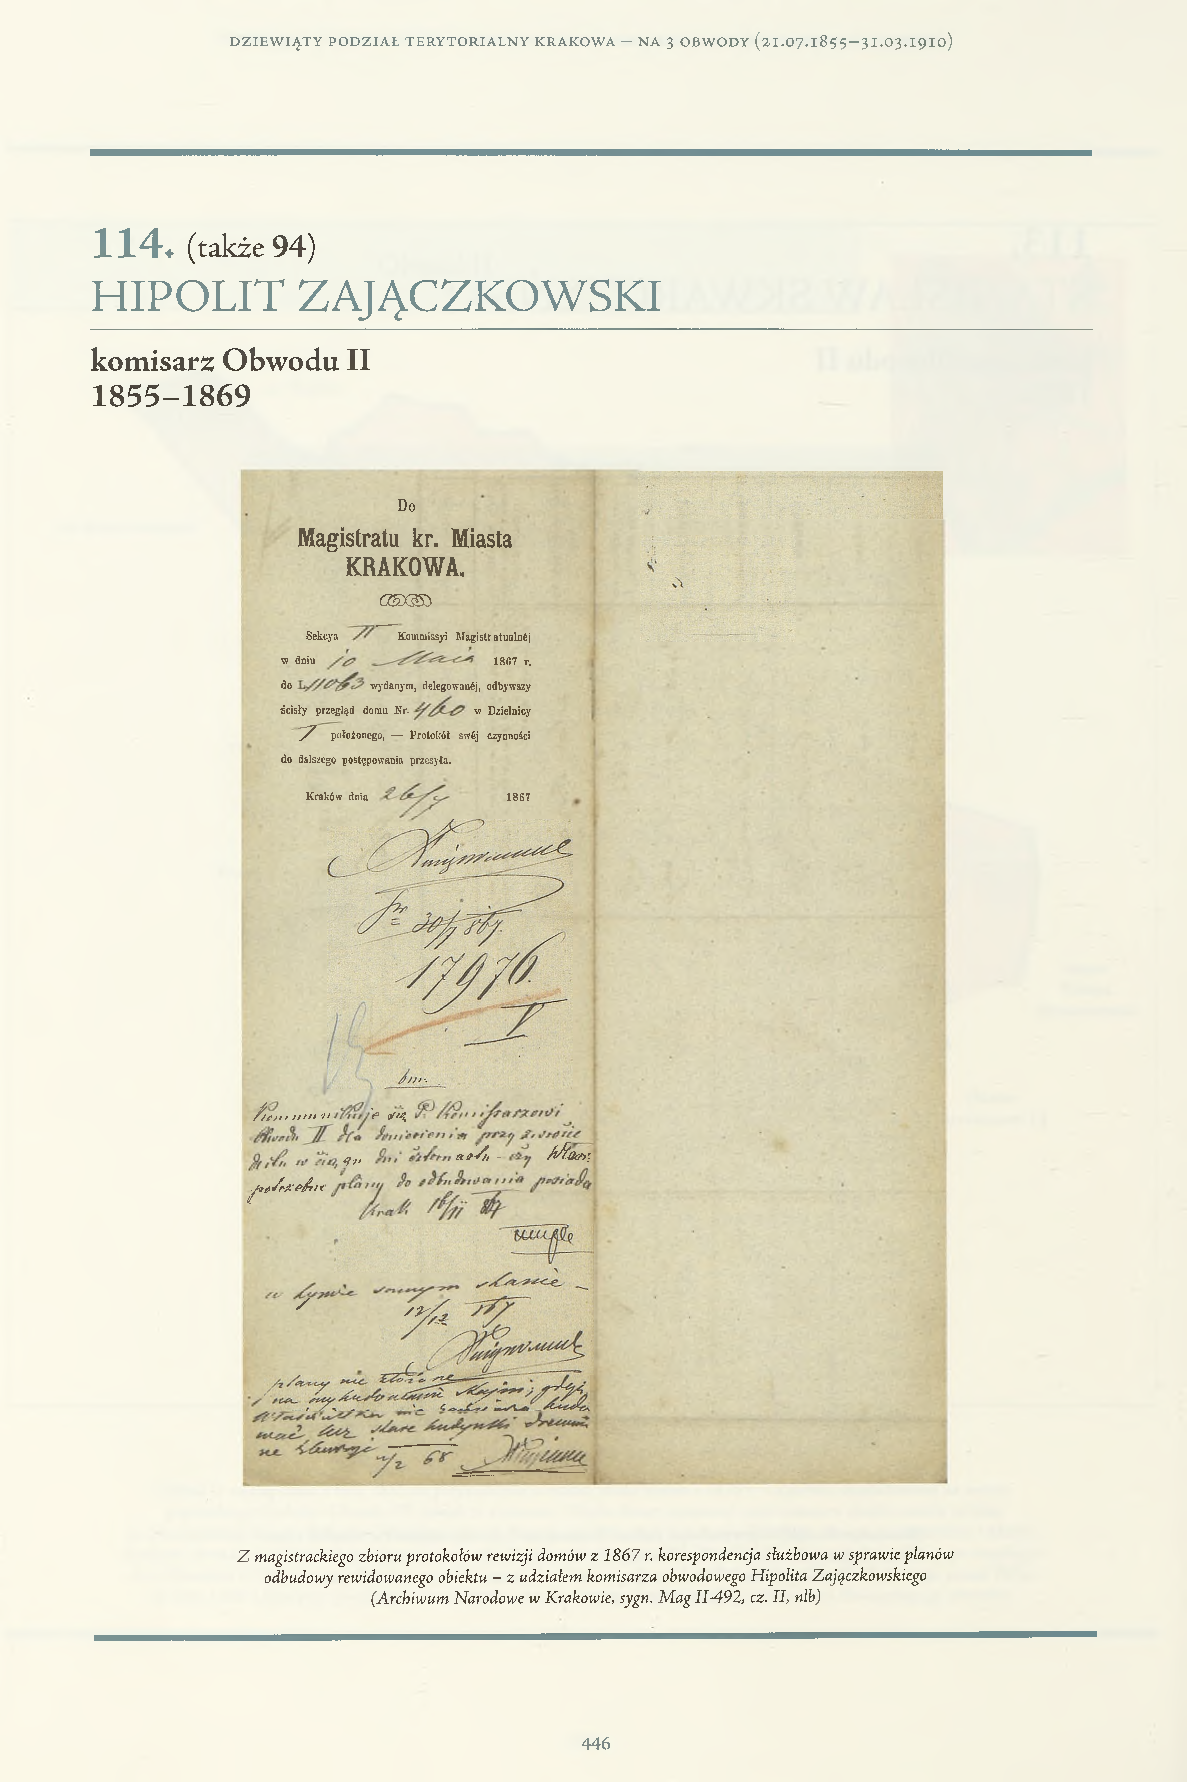 DZIEWIĄTY PODZIAŁ TERYTORIALNY KRAKOWA – NA 3 OBWODY (21.07.1855–31.03.1910)
114. (także 94)
HIPOLIT ZAJĄCZKOWSKI
komisarz Obwodu II
1855–1869
Do
Magistratu kr. Miasta
KRAKOWA.
Sekcya II Kommissyi Magistratualnéj
w dniu 10 Maia 1867 r.
do L. 11063 wydanym, delegowanéj, odbywszy
ścisły przegląd domu Nr. 460 w Dzielnicy
I położonego, — Protokół swéj czynności
do dalszego postępowania przesyła.
Kraków dnia 26/7 1867
Pr 30/7 867.
17976.
V
bm.
Kommunikuje się P. Komissarzowi
Obwodu II dla doniesienia przy zwrocie
aktu w ciągu dni - czy Właśc:
potrzebne plany do odbudowania posiada
Krak 16/11 867
w tymże samym stanie –
12/12 867
plany nie złożone
i na wybudowanie gdyż
Właścicielka nie budo
wać, lecz stare budynki drewnia
ne
/2 68
Z magistrackiego zbioru protokołów rewizji domów z 1867 r. korespondencja służbowa w sprawie planów
odbudowy rewidowanego obiektu – z udziałem komisarza obwodowego Hipolita Zajączkowskiego
(Archiwum Narodowe w Krakowie, sygn. Mag II-492, cz. II, nlb)
446